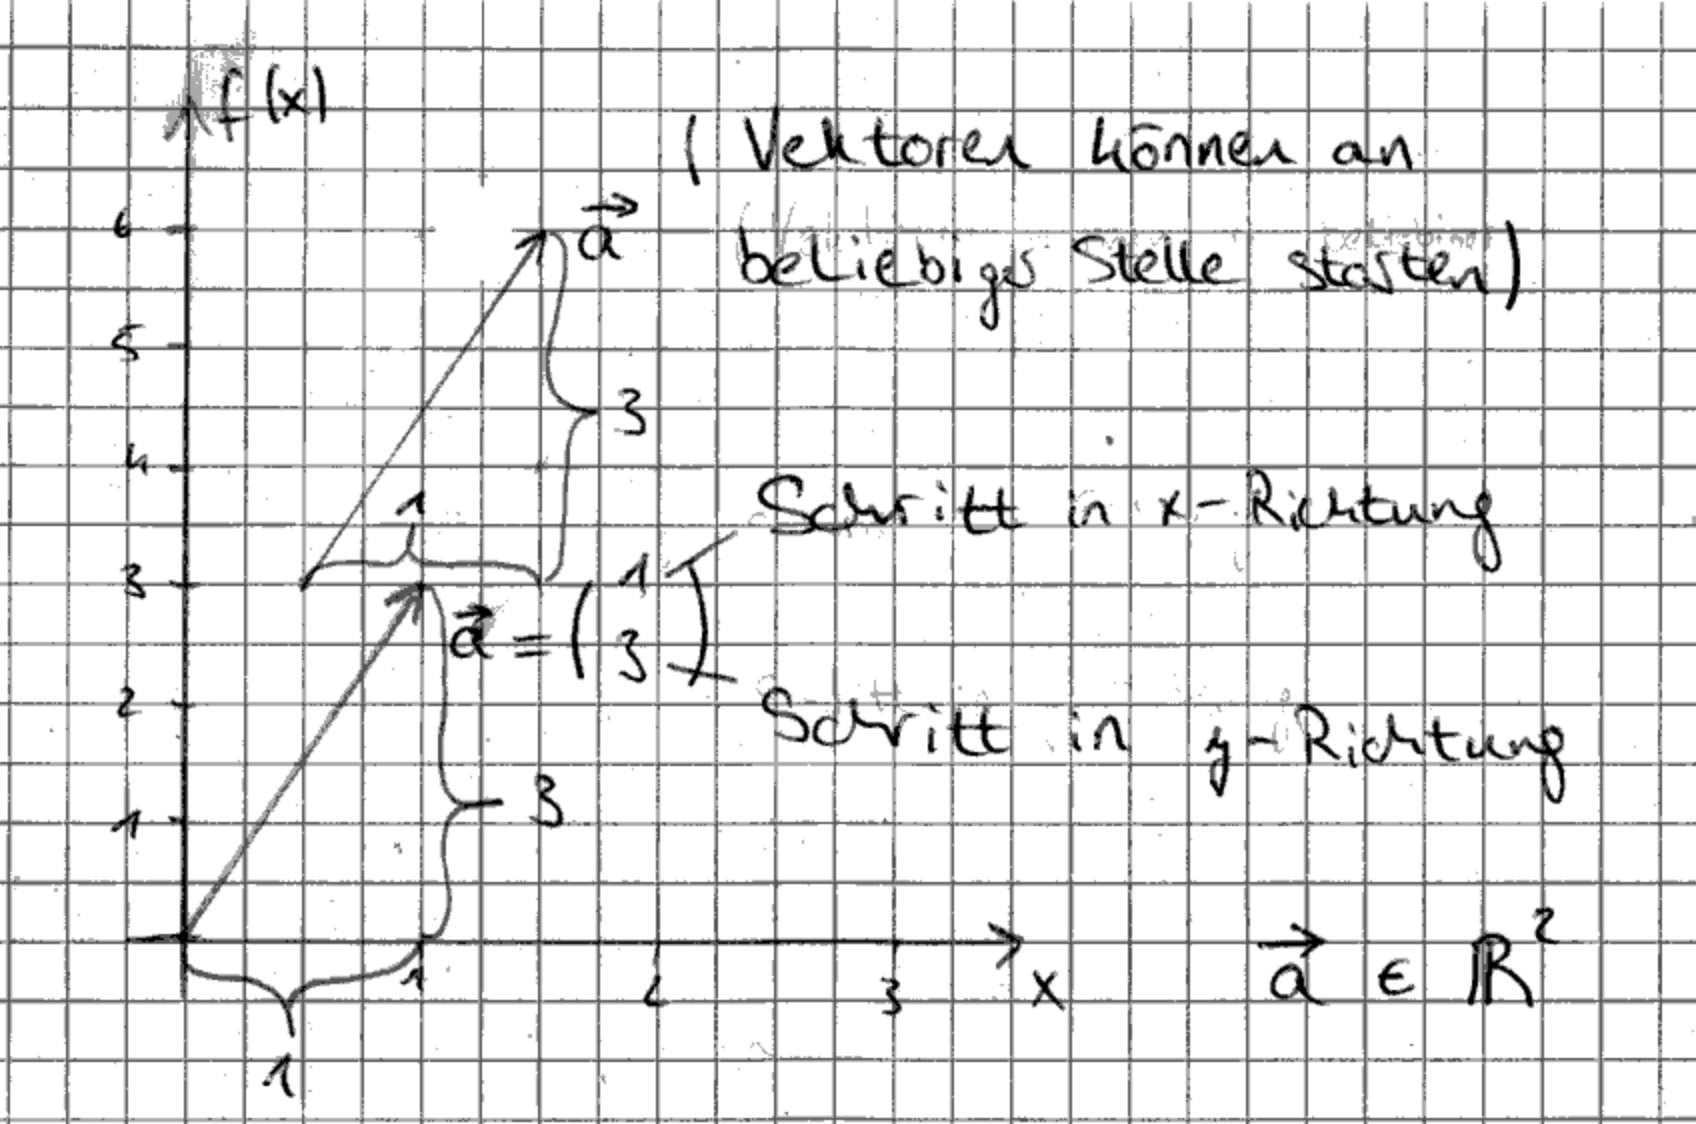 f(x)
( Vektoren können an
beliebiger Stelle starten)
6
a⃗
5
3
4
1
Schritt in x-Richtung
3
a⃗ = ( 1
3 )
2
Schritt in y-Richtung
3
1
1 2 3 x
a⃗ ∈ ℝ²
1